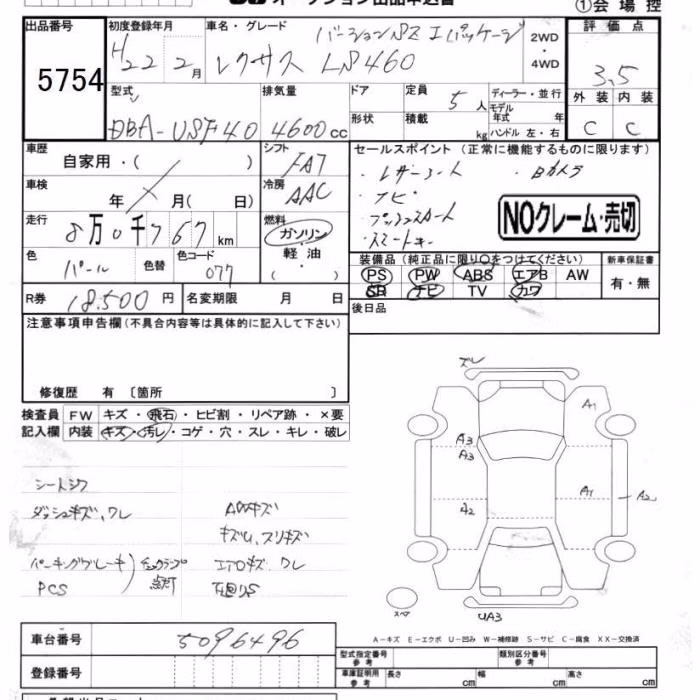 オークション出品申込書
①会場控
出品番号
5754
初度登録年月
H22 2月
車名・グレード
バージョンSZ Iパッケージ
レクサス LS460
2WD
・
4WD
評価点
3.5
外装 内装
C C
型式
DBA-USF40
排気量
4600cc
ドア
形状
定員
5人
積載
kg
ディーラー・並行
モデル
年式 年
ハンドル 左・右
車歴
自家用・( )
シフト
FAT
車検
年 月( 日)
冷房
AAC
走行
8万0千767km
燃料
ガソリン
・
軽油
・
( )
色
パール
色替
色コード
077
R券
18.500円
名変期限 月 日
セールスポイント(正常に機能するものに限ります)
・レザーシート ・Bカメラ
・ナビ
・プッシュスタート
・スマートキー
NOクレーム・売切
装備品(純正品に限り○をつけてください)
PS PW ABS エアB AW
SR ナビ TV カワ
新車保証書
有・無
後日品
注意事項申告欄(不具合内容等は具体的に記入して下さい)
修復歴 有〔箇所 〕
検査員 FW キズ・飛石・ヒビ割・リペア跡・×要
記入欄 内装 キズ・汚レ・コゲ・穴・スレ・キレ・破レ
シートシワ
ダッシュキズ、ワレ
パーキングブレーキ
PCS
チェックランプ
点灯
AWキズ
キズム、スリキズ
エアロキズ、ワレ
下廻りS
ズレ
A1
A3
A3
A2
A1
A2
スペア
UA3
A-キズ E-エクボ U-凹み W-補修跡 S-サビ C-腐食 XX-交換済
車台番号
5096496
登録番号
型式指定番号
参考
類別区分番号
参考
車庫証明用
参考
長さ cm
幅 cm
高さ cm